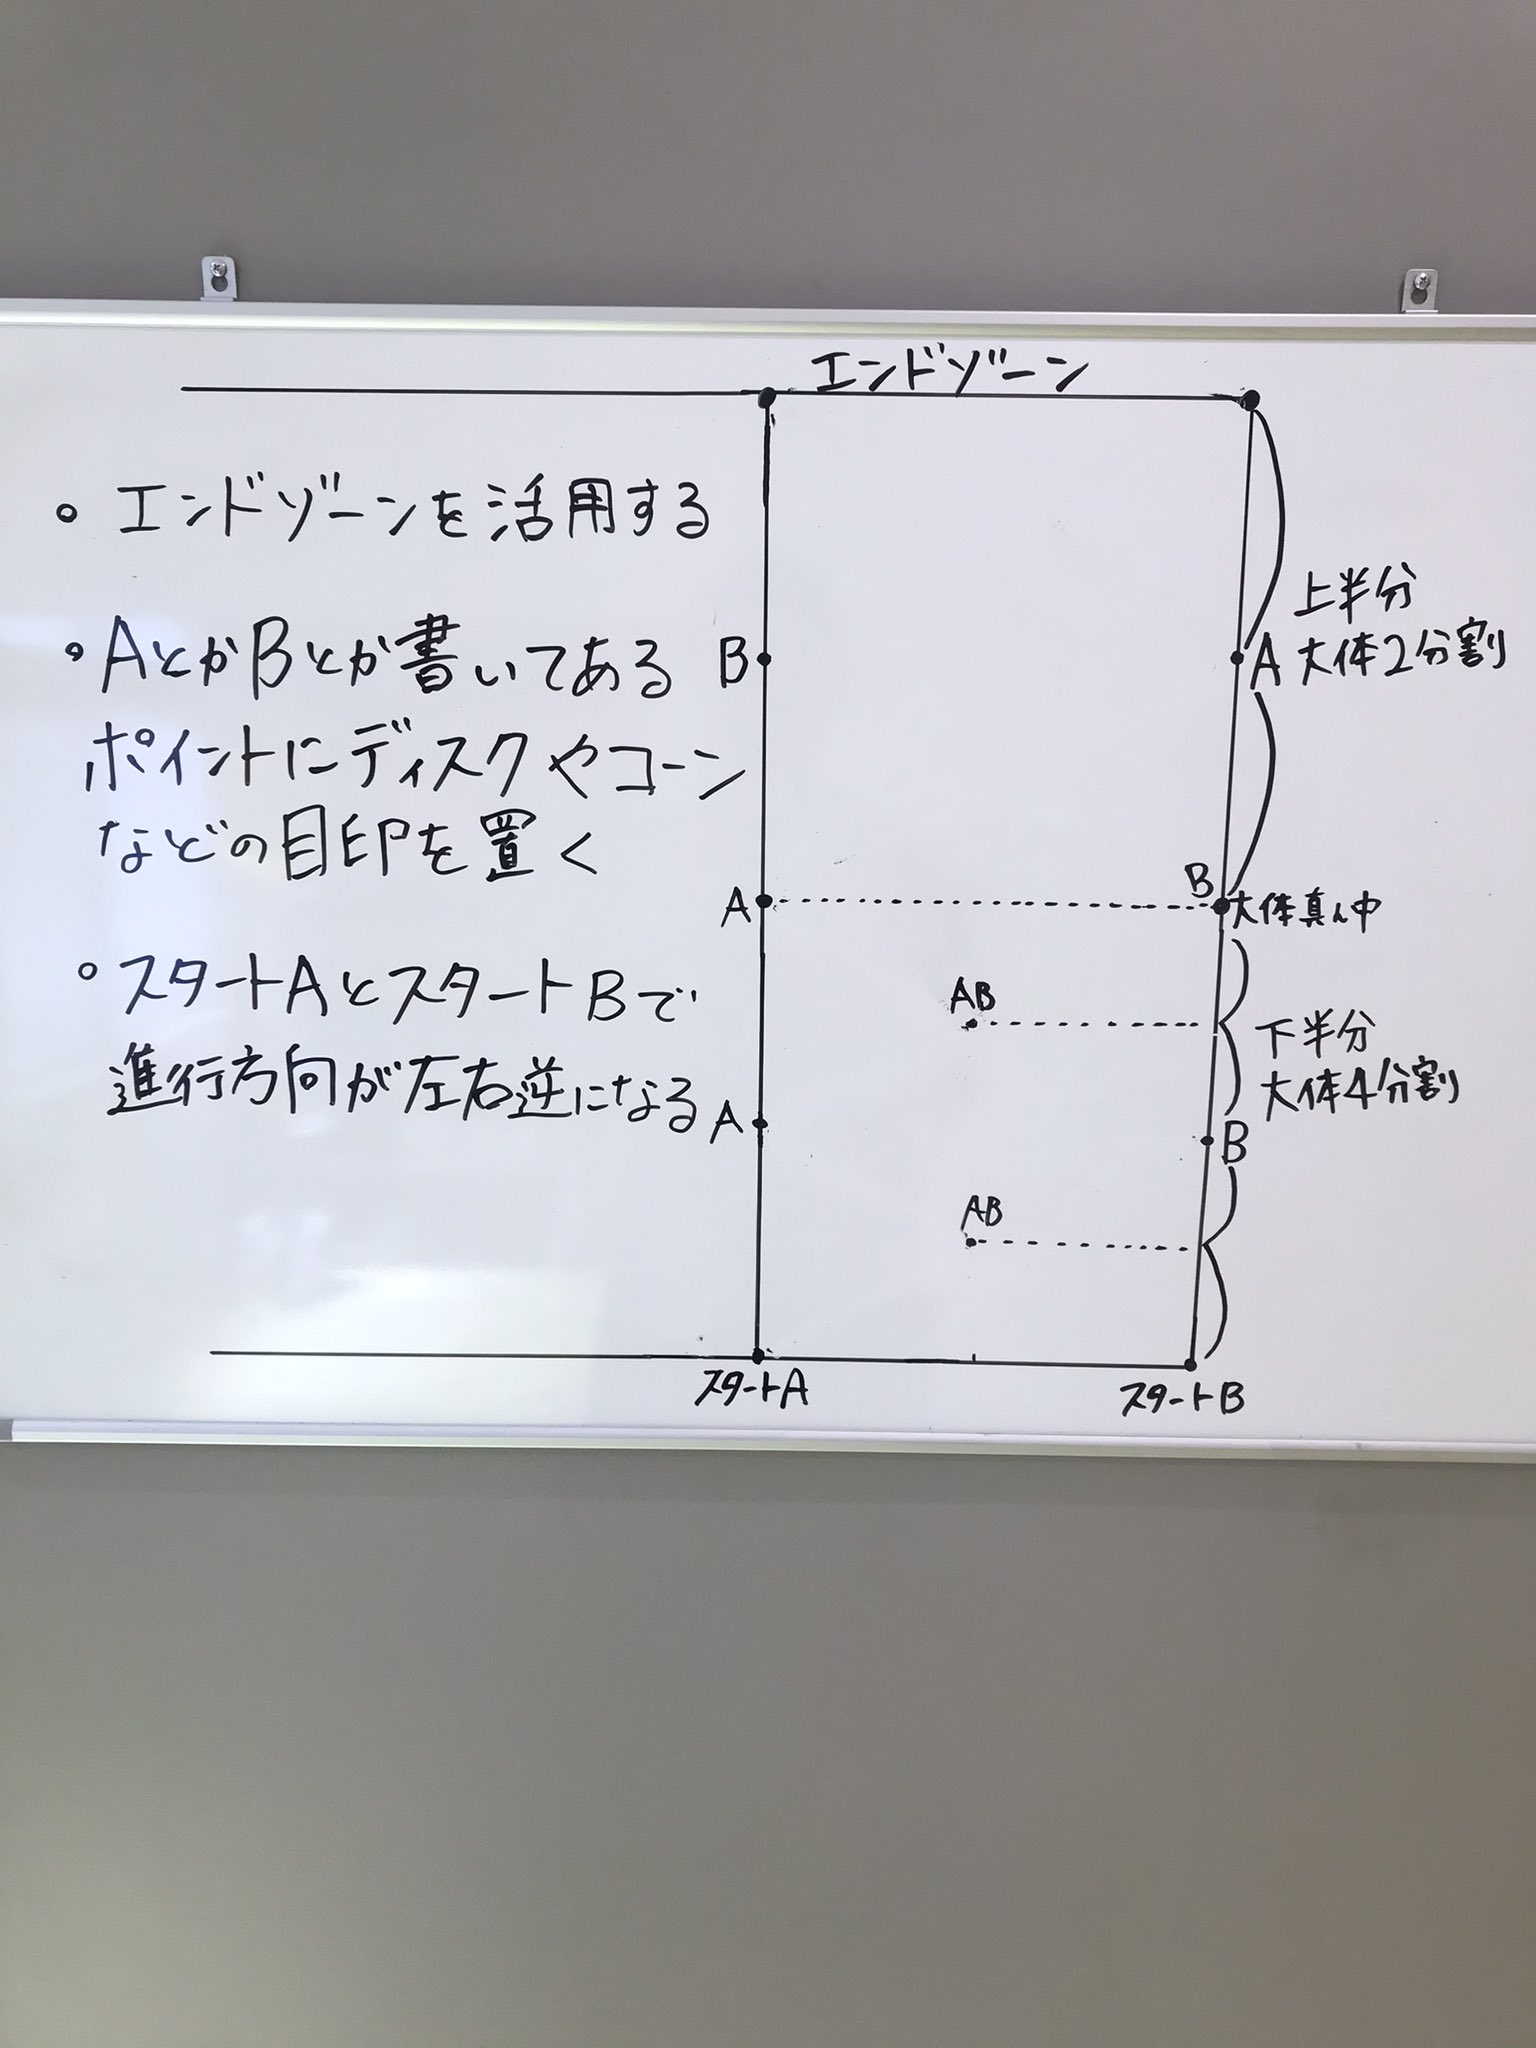 エンドゾーン
。エンドゾーンを活用する
。AとかBとか書いてある
ポイントにディスクやコーン
などの目印を置く
。スタートAとスタートBで
進行方向が左右逆になる
B
A
A
上半分
A 大体2分割
B
大体真ん中
AB
下半分
大体4分割
B
AB
スタートA
スタートB